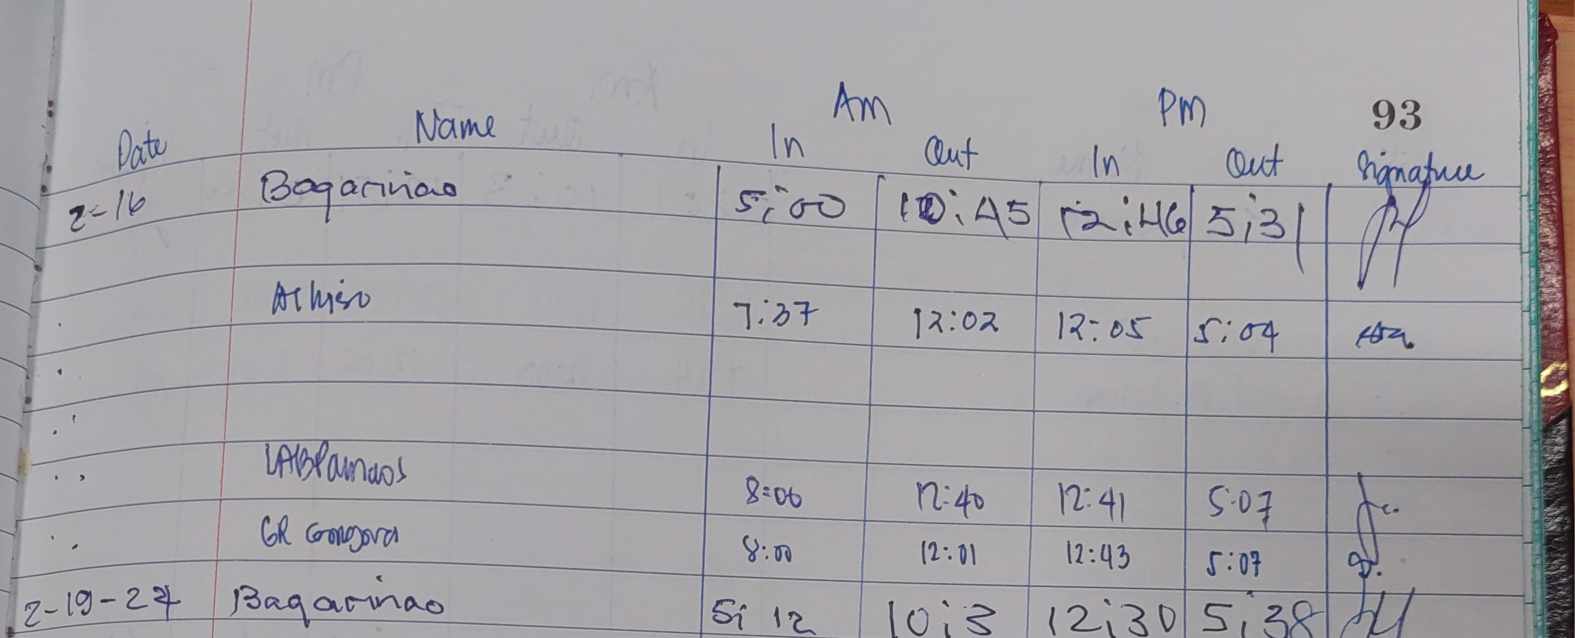 Am PM 93
Date Name In Out In Out Signature
2-16 Bagarinao 5:00 10:45 12:46 5:31
7:37 12:02 12:05 5:04
8:06 12:40 12:41 5:07
GR Gongora 8:00 12:01 12:43 5:07
2-19-24 Bagarinao 5:12 10:3 12:30 5:38